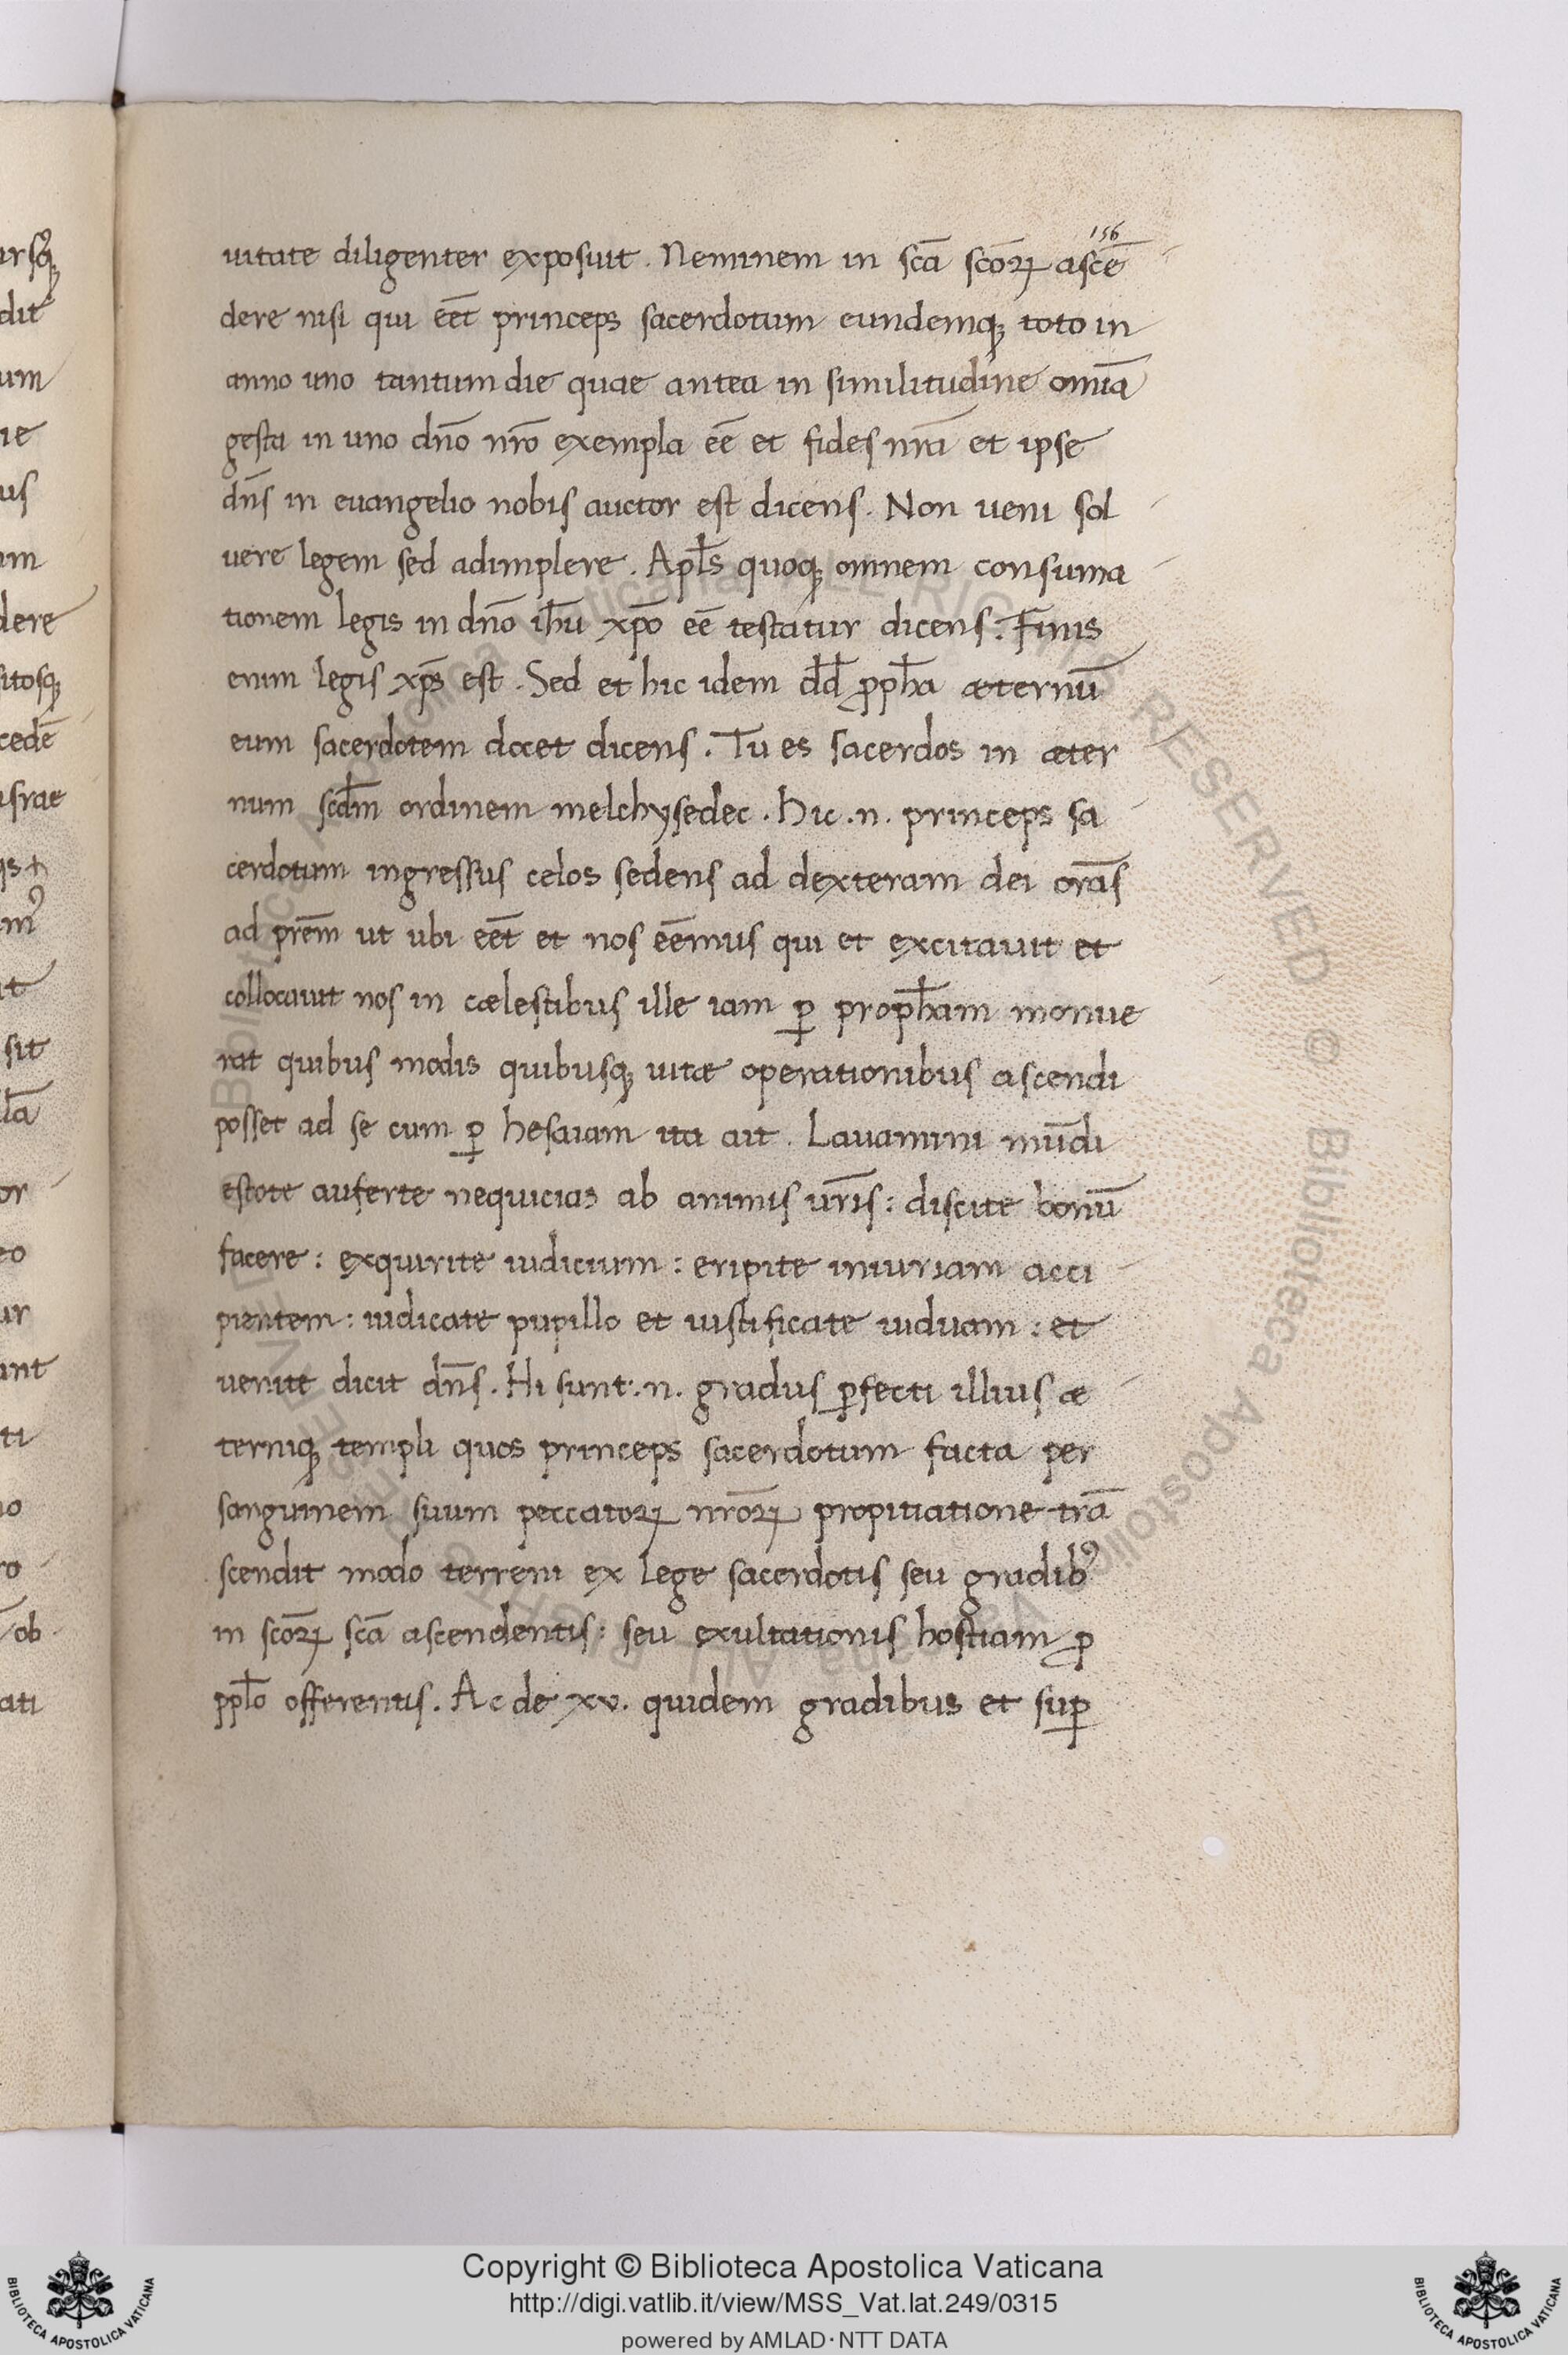 156
uitate diligenter exposuit. Neminem in scā scōrꝝ ascē
dere nisi qui eēt princeps sacerdotum eundemqꝫ toto in
anno uno tantum die quae antea in similitudine omīa
gesta in uno dn̄o nr̄o exempla eē et fides nr̄a et ipse
dn̄s in euangelio nobis auctor est dicens. Non ueni sol
uere legem sed adimplere. Apl̄s quoqꝫ omnem consuma
tionem legis in dn̄o ih̄u xp̄o eē testatur dicens. Finis
enim legis xp̄s est. Sed et hic idem dd̄ ꝓph̄a æternū
eum sacerdotem docet dicens. Tu es sacerdos in æter
num scdm̄ ordinem melchysedec. Hic .n. princeps sa
cerdotum ingressus celos sedens ad dexteram dei orās
ad prēm ut ubi eēt et nos eēmus qui et excitauit et
collocauit nos in cælestibus ille iam ꝑ proph̄am monue
rat quibus modis quibusqꝫ uitæ operationibus ascendi
posset ad se cum ꝑ hesaiam ita ait. Lauamini mūdi
estote auferte nequicias ab animis ur̄is: discite bonū
facere: exquirite iudicium: eripite iniuriam acci
pientem: iudicate pupillo et iustificate uiduam: et
uenite dicit dn̄s. Hi sunt .n. gradus ꝑfecti illius æ
terniqꝫ templi quos princeps sacerdotum facta per
sanguinem suum peccatorꝝ nr̄orꝝ propitiatione trā
scendit modo terreni ex lege sacerdotis seu gradibꝰ
in scōrꝝ scā ascendentis: seu exultationis hostiam ꝓ
ppl̄o offerentis. Ac de xv. quidem gradibus et suꝑ
Copyright © Biblioteca Apostolica Vaticana
http://digi.vatlib.it/view/MSS_Vat.lat.249/0315
powered by AMLAD·NTT DATA
BIBLIOTECA APOSTOLICA VATICANA
BIBLIOTECA APOSTOLICA VATICANA